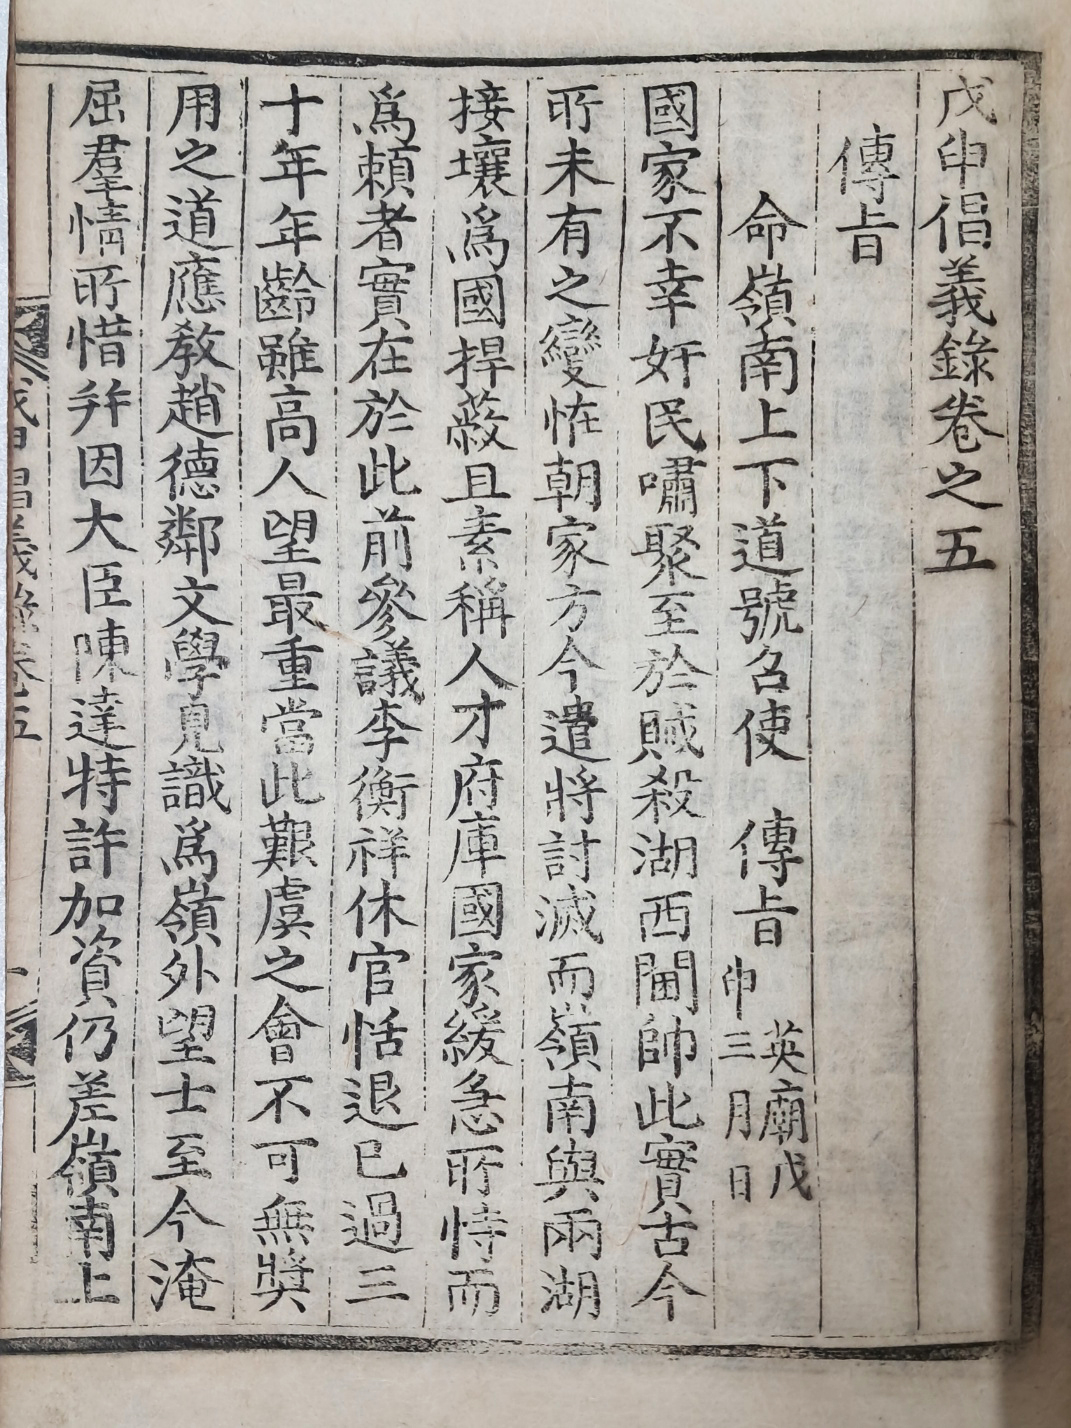 戊申倡義錄卷之五
傳旨
命嶺南上下道號召使 傳旨 英廟戊申三月日
國家不幸奸民嘯聚至於賊殺湖西閫帥此實古今
所未有之變恠朝家方今遣將討滅而嶺南與兩湖
接壤爲國捍蔽且素稱人才府庫國家緩急所恃而
爲賴者實在於此前參議李衡祥休官恬退已過三
十年年齡雖高人望最重當此艱虞之會不可無奬
用之道應敎趙德鄰文學見識爲嶺外望士至今淹
屈羣情所惜幷因大臣陳達特許加資仍差嶺南上